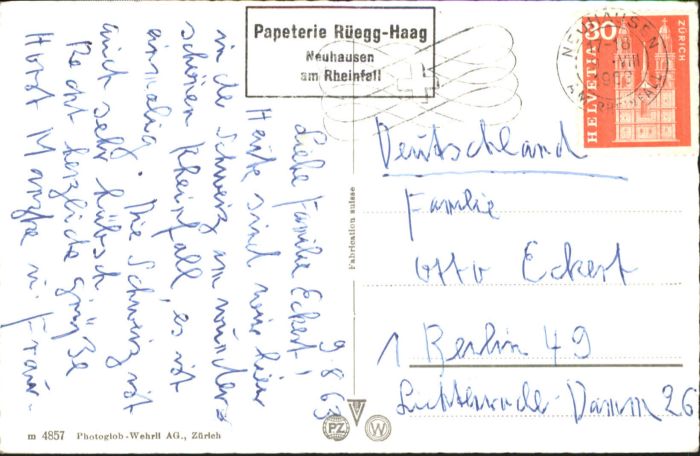 Papeterie Rüegg-Haag
Neuhausen
am Rheinfall
NEUHAUSEN
AM RHEINFALL
30
HELVETIA
ZÜRICH
9.8.63
Liebe Familie Eckert!
Heute sind wir hier
in der Schweiz am wunder-
schönen Rheinfall, es ist
einmalig. Die Schweiz ist
auch sehr hübsch.
Recht herzliche Grüße
Horst u. Frau
Fabrication suisse
Deutschland
Familie
Otto Eckert
1 Berlin 49
Lichtenrader-Damm 26
m 4857 Photoglob-Wehrli AG., Zürich
PZ
W